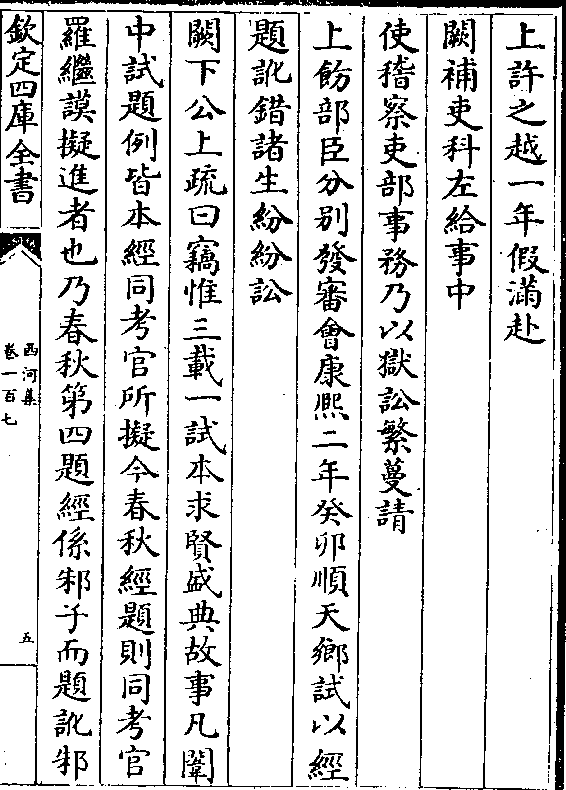 上許之越一年假滿赴
闕補吏科左給事中
使稽察吏部事務乃以獄訟繁蔓請
上飭部臣分别發審會康熙二年癸卯順天鄉試以經
題訛錯諸生紛紛訟
闕下公上疏曰竊惟三載一試本求賢盛典故事凡闈
中試題例皆本經同考官所擬今春秋經題則同考官
羅繼謨擬進者也乃春秋第四題經係邾子而題訛邾
欽定四庫全書
西河集
卷一百七
五